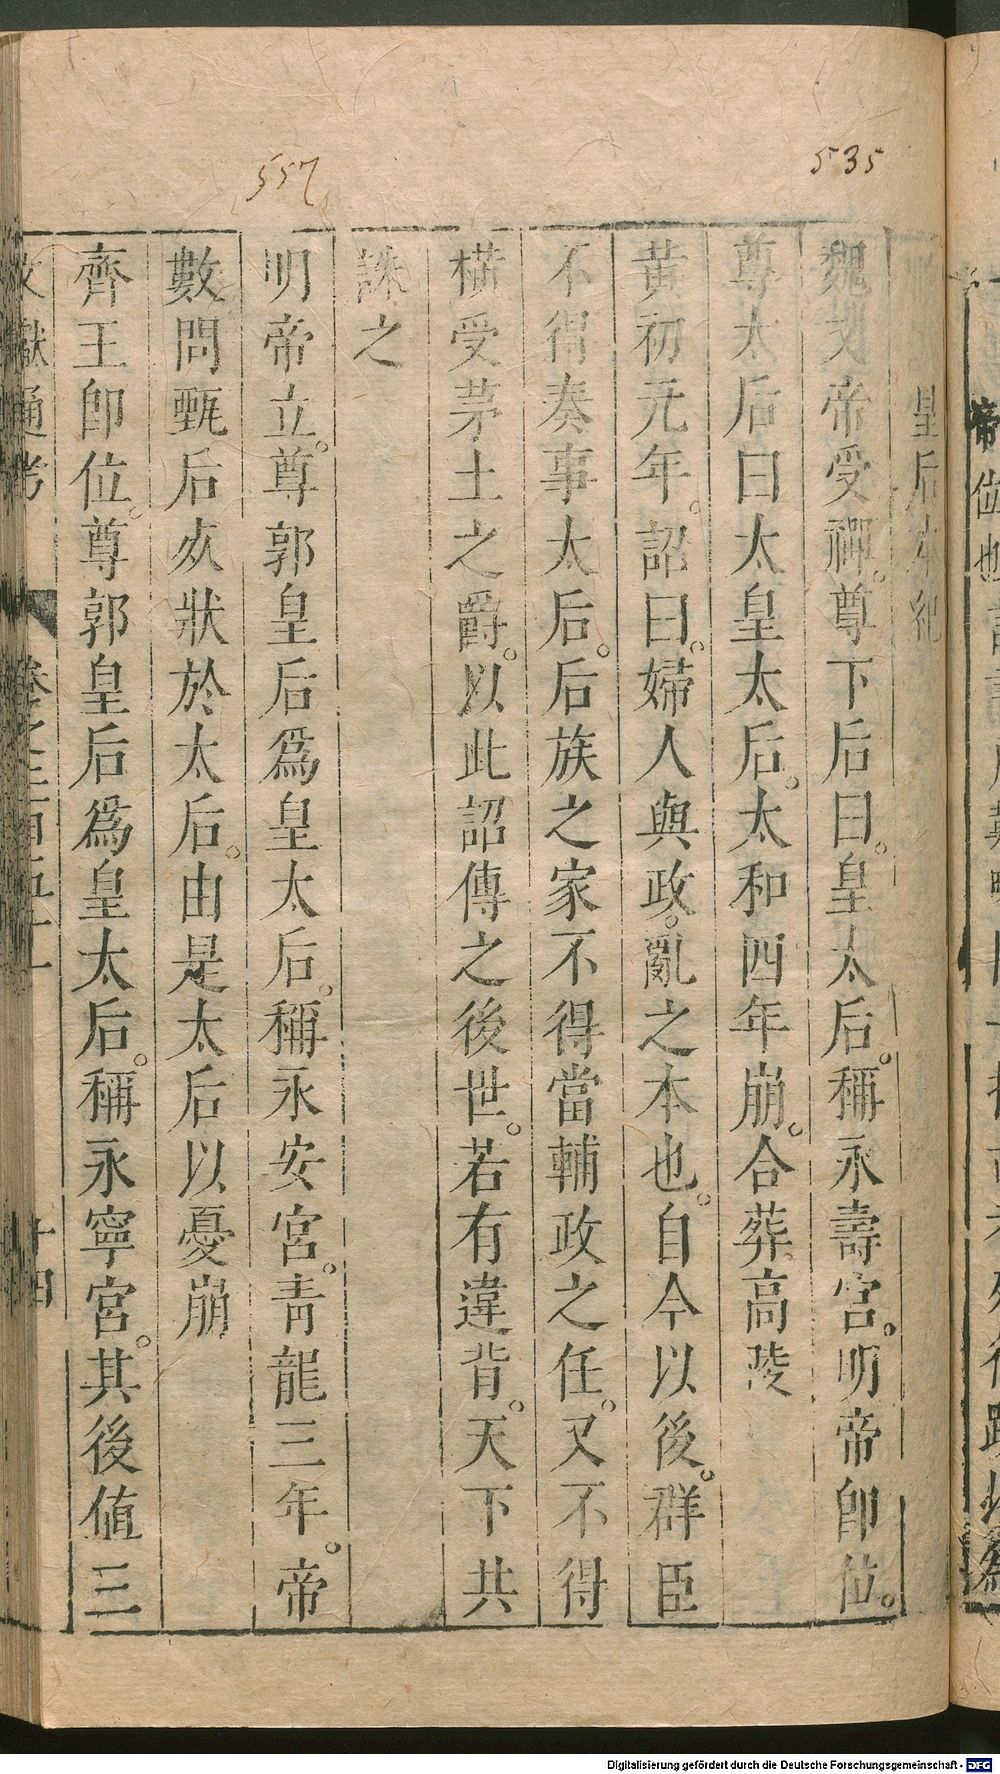 535
557
皇后本紀
魏文帝受禪。尊卞后曰。皇太后。稱永壽宮。明帝卽位。
尊太后曰太皇太后。太和四年崩。合葬高陵
黃初元年。詔曰。婦人與政。亂之本也。自今以後。群臣
不得奏事太后。后族之家不得當輔政之任。又不得
橫受茅土之爵。以此詔傳之後世。若有違背。天下共
誅之
明帝立。尊郭皇后爲皇太后。稱永安宮。青龍三年。帝
數問甄后死狀於太后。由是太后以憂崩
齊王卽位。尊郭皇后爲皇太后。稱永寧宮。其後値三
文獻通考
十四
帝位也
Digitalisierung gefördert durch die Deutsche Forschungsgemeinschaft - DFG